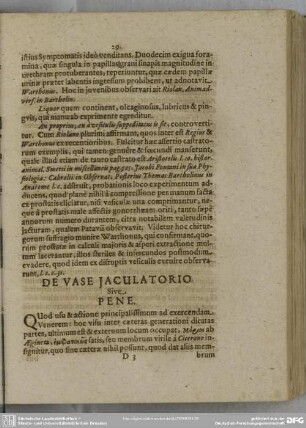 29.
istius Symptomatis ideò venditans. Duodecim exigua fora-
mina, quæ singula in papillas grani sinapis magnitudine in
urethram protuberantes, reperiuntur, quæ cædem papillæ
urinæ præter labentis ingressum prohibent, ut adnotavit
Warthonus. Hoc in juvenibus observari ait Riolan. Animad-
vers. in Bartholin:
Liquor quem continent, oleaginosus, lubricus & pin-
gvis, qui manu ab exprimente egreditur.
An proprius, an à vesiculis suppeditetur is sit, controverti-
tur. Cum Riolano plurimi affirmant, quos inter est Regius &
Warthonus ex recentioribus. Fulcitur hæc assertio castrato-
rum exemplis, qui tamen genuêre & fœcundi manserunt,
quale illud etiam de tauro castrato est Aristotelis l. 10. histor.
animal. Sueßi in miscellaneis p. Jacobi Fontani in sua Phy-
siologia: Cabrolii in Observat. Posterius Thomas Bartholinus in
Anatome l. 1. asserit, probationis loco experimentum ad-
ducens, quod planè nihil ex compressione penis aut manu fa-
cta ex prostatis eliciatur, nisi vesicula una comprimantur, ne-
que à prostatis male affectis gonorrhœam oriri, tantò sæpè
annorum numero durantem, citra notabilem valetudinis
jacturam, qualem Patavii observavit. Videtur hoc chirur-
gorum suffragio munire Warthonus, qui confirmant, quo-
rum prostatæ in calculi majoris & asperi extractione mul-
tum lacerantur, illos steriles & infœcundos postmodum
evadere, quod idem ex disruptis vesiculis evenire observa-
runt, l. c. c. 31.
DE VASE JACULATORIO
Sive
PENE.
Quod usu & actione principalissimum ad exercendam
Venerem: hoc visu inter cæteras generationi dicatas
partes, ultimum est & exterum locum occupat.
Æginetæ, satis, seu membrum virile à Cicerone in-
signitur, quo sine cætera nihil possunt, quod dat aliis mem-
D 3 brum